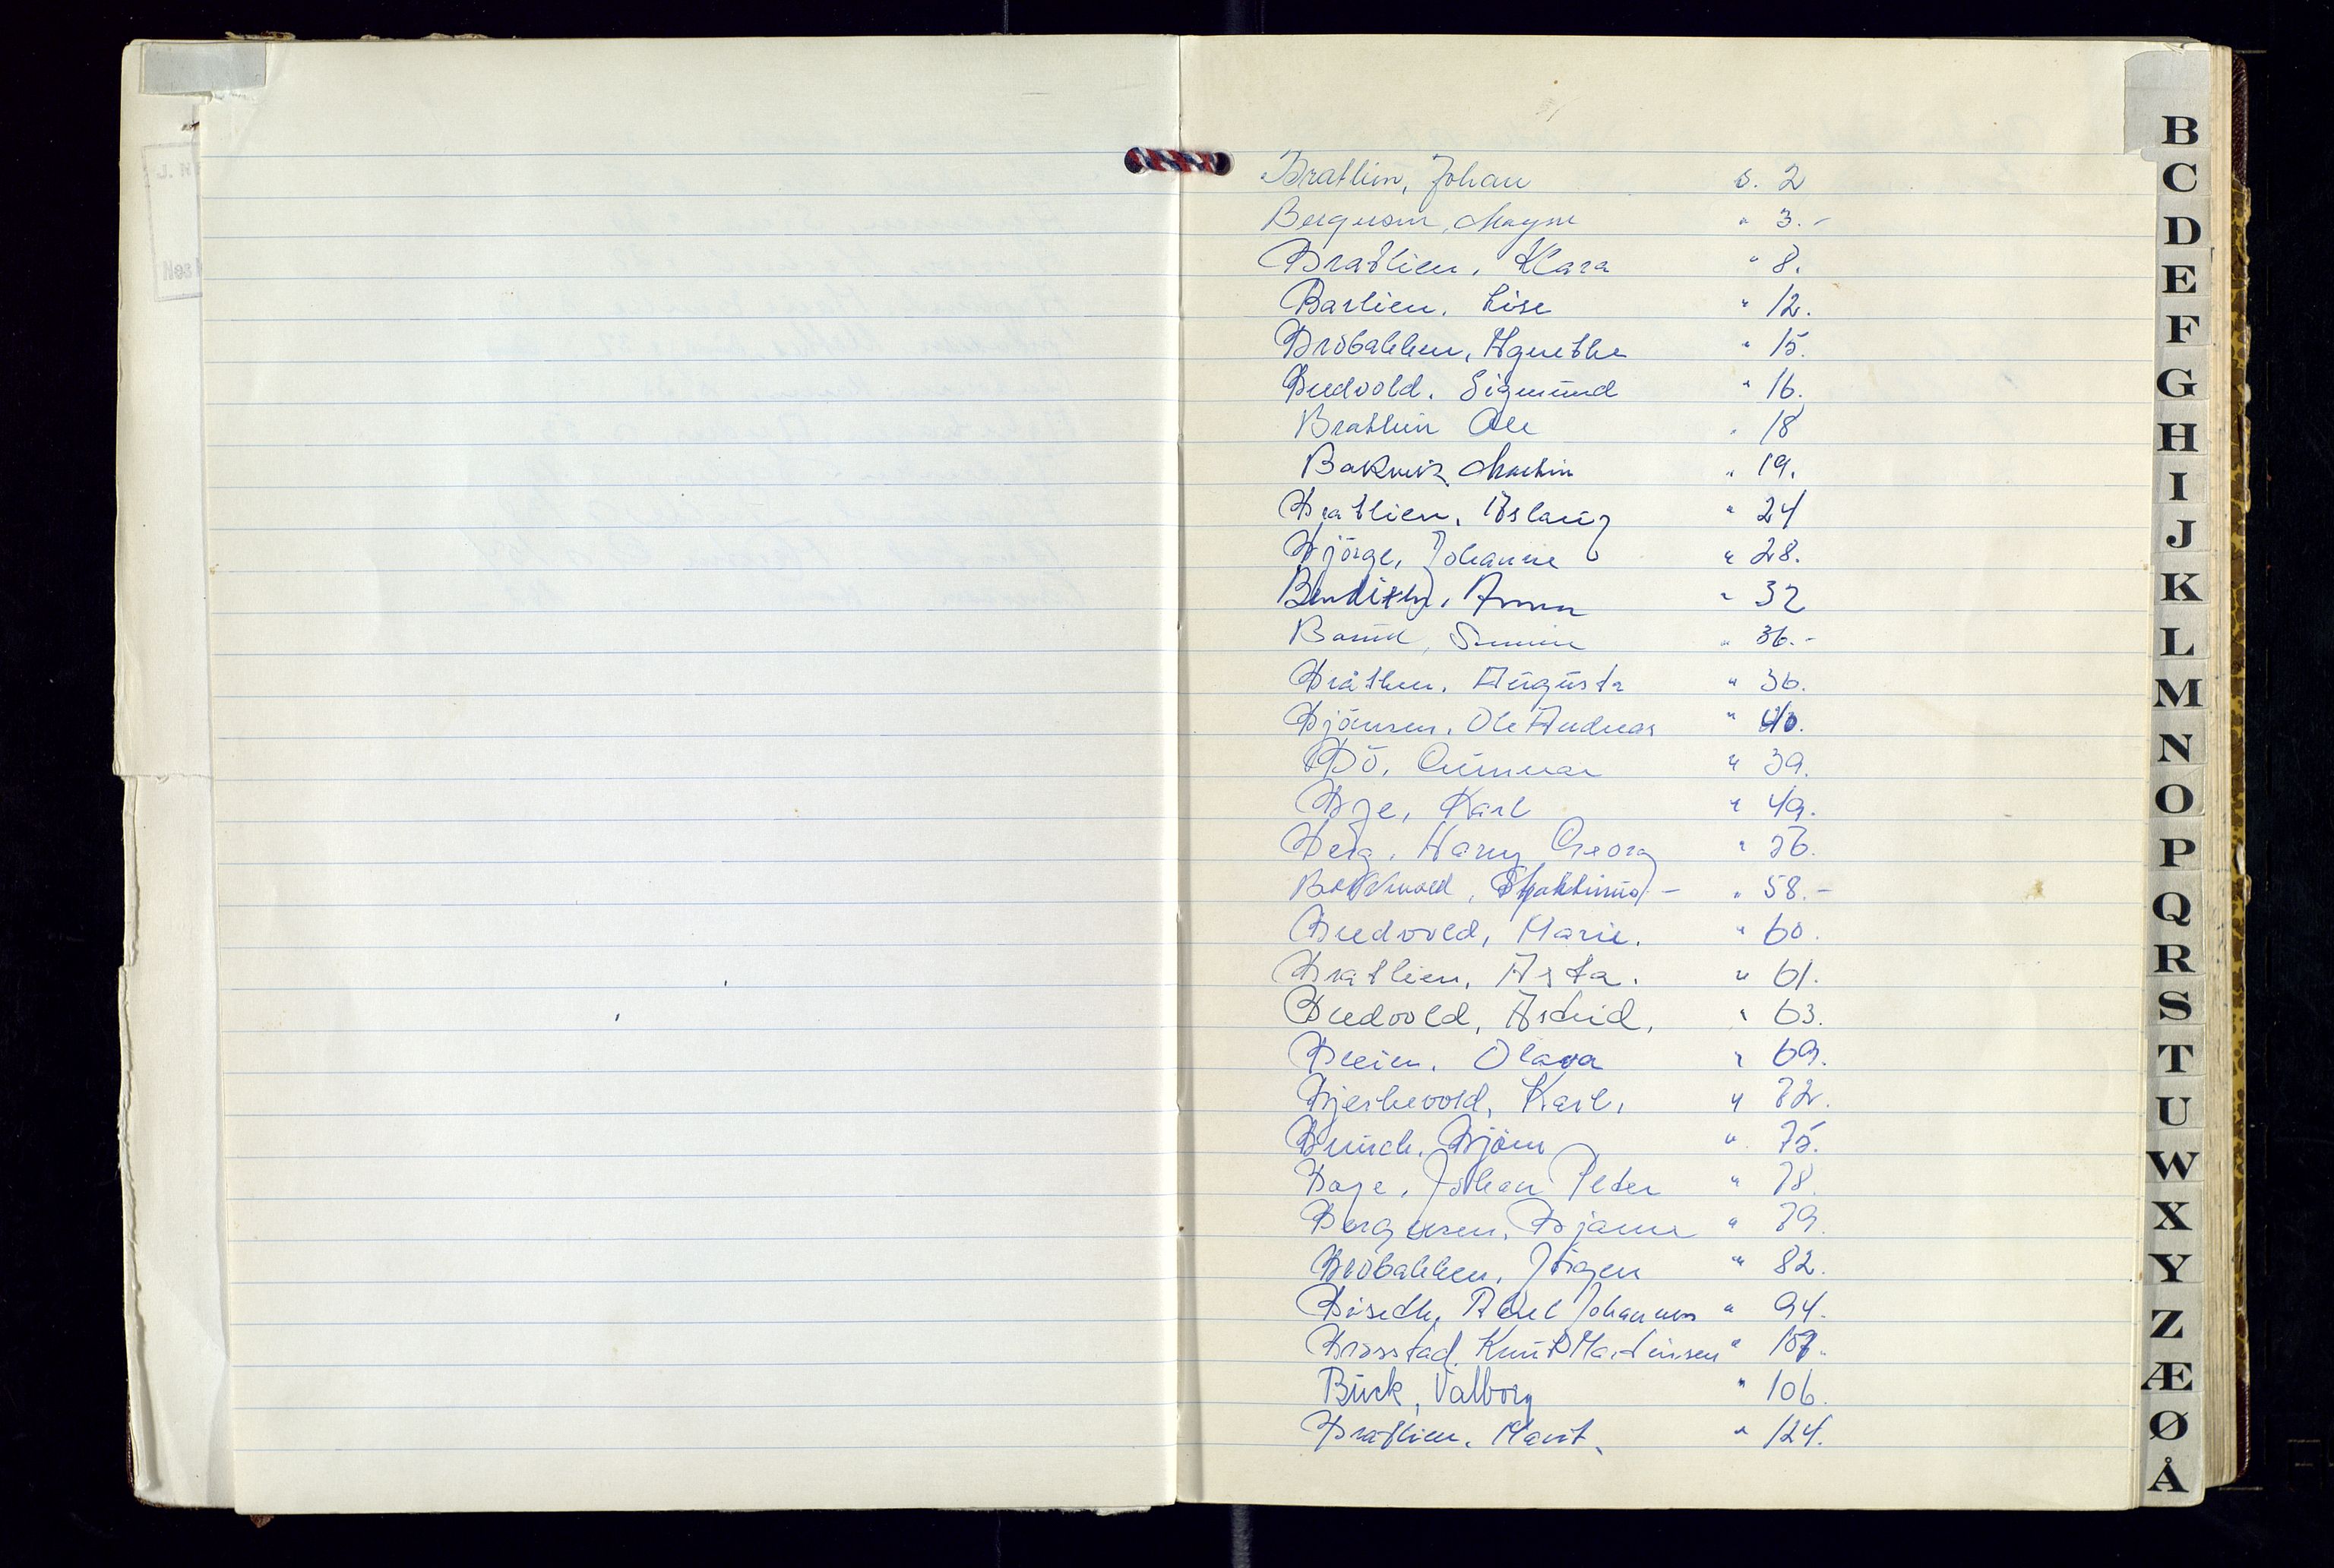 Bratlien, Johan s. 2
Bergersen, Magne " 3.-
Bratlien, Klara " 8.
Barlien, Lise " 12.
Bröbakken, Agnethe " 15.
Budvold, Sigmund " 16.
Bratlien Ole " 18
Bakvik, Martin " 19.
Bratlien, Aslaug " 24
Björge, Johanne " 28.
Bendixen, Anna " 32
" 36.-
Bråthen, Augusta " 36.
Björnsen, Ole Andreas " 40.
Bö, Gunnar " 39.
Bye, Karl " 49.
Berg, Harry Georg " 56.
" 58.-
Budvold, Marie. " 60.
Bratlien, Asta. " 61.
Budvold, Astrid, " 63.
Bleien, Olava " 69.
Bjerkevold, Karl, " 72.
Bunch, Björn " 75.
Boye, Johan Peder " 78.
Bergersen, Bjarne " 79.
Bröbakken, Jörgen " 82.
Johannes " 94.
Brosstad, Knut Martinsen " 107.
Burk, Valborg " 106.
Bratlien, Marit. " 124.
B
C
D
E
F
G
H
I
J
K
L
M
N
O
P
Q
R
S
T
U
W
X
Y
Z
Æ
Ø
Å